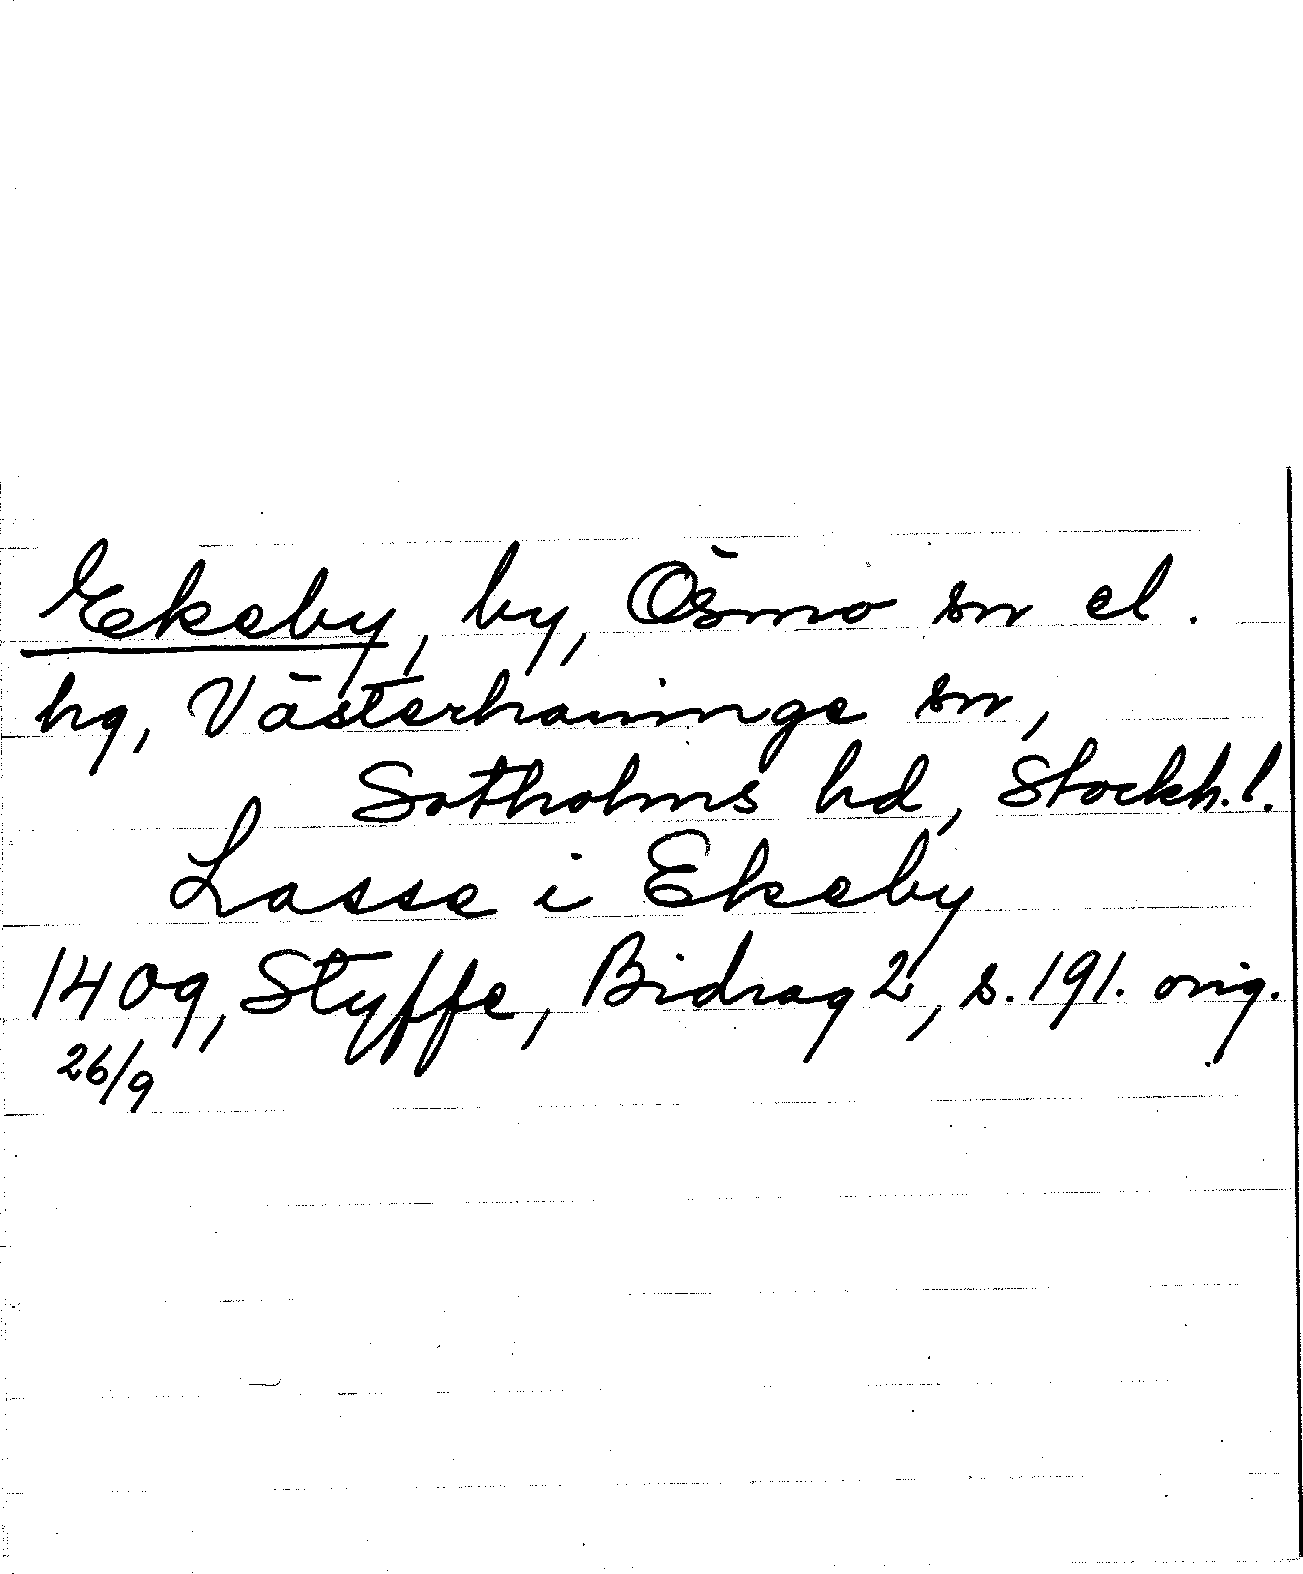 Ekeby, by, Ösmo sn el.
hg, Västerhaninge sn,
Sotholms hd, Stockh. l.
Lasse i Ekeby
1409, Styffe, Bidrag 2, s. 191. orig.
26/9